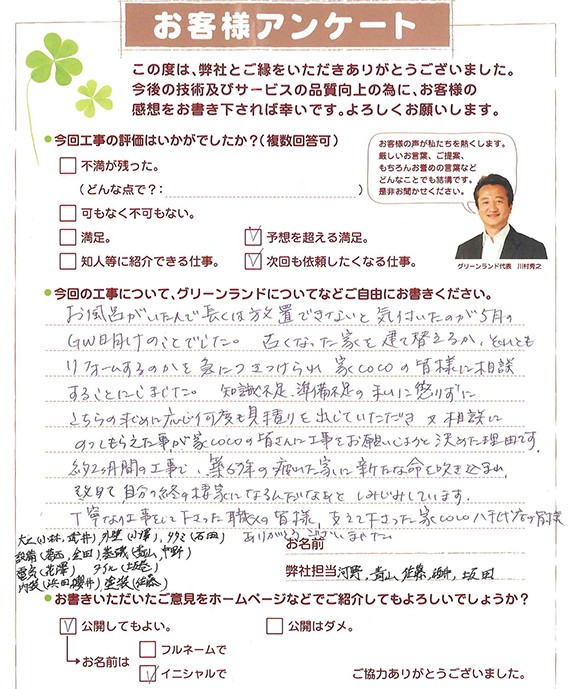 お客様アンケート
この度は、弊社とご縁をいただきありがとうございました。
今後の技術及びサービスの品質向上の為に、お客様の
感想をお書き下されば幸いです。よろしくお願いします。
今回工事の評価はいかがでしたか?(複数回答可)
不満が残った。
(どんな点で?: )
可もなく不可もない。
満足。
予想を超える満足。
知人等に紹介できる仕事。
次回も依頼したくなる仕事。
お客様の声が私たちを熱くします。
厳しいお言葉、ご提案、
もちろんお誉めの言葉など
どんなことでも結構です。
是非お聞かせください。
グリーンランド代表 川村秀之
今回の工事について、グリーンランドについてなどご自由にお書きください。
お風呂がいたんで長くは放置できないと気付いたのが5月の
GW目前のことでした。 古くなった家を建て替えるか、それとも
リフォームするのかを急につきつけられ 家cocoの皆様に相談
することにしました。 知識不足、準備不足の私に怒らずに
こちらの求めに応じ何度も見積りを出していただき 又 相談に
のってもらえた事が家cocoの皆さんに工事をお願いしようと決めた理由です。
約2ヶ月間の工事で、築57年の疲れた家に新たな命を吹き込まれ
改めて自分の終の棲家になるんだなあと しみじみしています。
丁寧な工事をして下さった職人の皆様、支えて下さった家coco八千代店の皆様
ありがとうございました。
大工(小林、 )外壁(小澤)、タタミ(石田)
設備(葛西、金田)基礎(青山、中野)
電気(花澤) タイル( )
内装(浜田、櫻井)、塗装(佐藤)
お名前
弊社担当 河野、青山、佐藤、 、坂田
お書きいただいたご意見をホームページなどでご紹介してもよろしいでしょうか?
公開してもよい。
公開はダメ。
お名前は
フルネームで
イニシャルで
ご協力ありがとうございました。